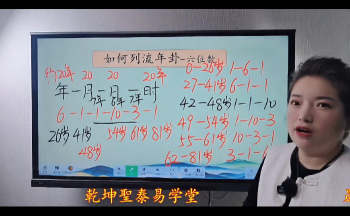 如何列流年卦-六位数
20年 20 20 20年
年一月一日一时
6-1-1-10-3-1
26岁 41岁 54岁 61岁 81岁
48岁
0-26岁 1-6-1
27-41岁 6-1-1
42-48岁 1-1-10
49-54岁 1-10-3
55-61岁 10-3-1
62-81岁 3-1-6
乾坤聖泰易学堂